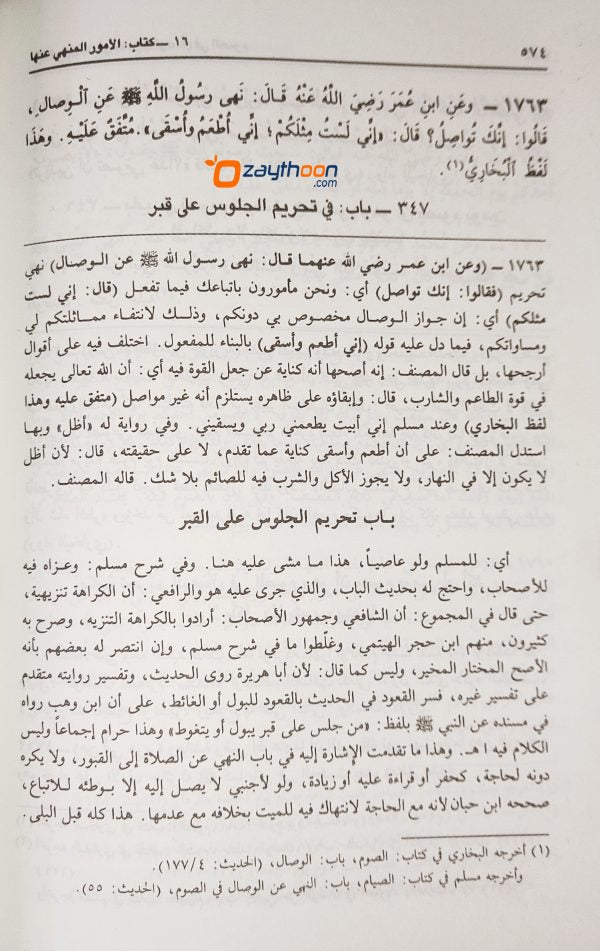 ٥٧٤
١٦ ـ كتاب: الأمور المنهي عنها
١٧٦٣ ـ وعَنِ ابنِ عُمَرَ رَضِيَ اللَّهُ عَنْهُ قَالَ: نَهى رسُولُ اللَّهِ ﷺ عَنِ الْوِصالِ،
قَالُوا: إنَّكَ تُواصِلُ؟ قَالَ: «إنِّي لَسْتُ مِثْلَكُمْ؛ إنِّي أُطْعَمُ وأُسْقَى». مُتَّفَقٌ عَلَيْهِ. وهَذَا
لَفْظُ الْبُخَارِيِّ(١).
Ozaythoon
.com
٣٤٧ ـ باب: في تحريم الجلوس على قبر
١٧٦٣ ـ (وعن ابن عمر رضي الله عنهما قال: نهى رسول الله ﷺ عن الوصال) نهي
تحريم (فقالوا: إنك تواصل) أي: ونحن مأمورون باتباعك فيما تفعل (قال: إني لست
مثلكم) أي: إن جواز الوصال مخصوص بي دونكم، وذلك لانتفاء مماثلتكم لي
ومساواتكم، فيما دل عليه قوله (إني أطعم وأسقى) بالبناء للمفعول. اختلف فيه على أقوال
أرجحها، بل قال المصنف: إنه أصحها أنه كناية عن جعل القوة فيه أي: أن الله تعالى يجعله
في قوة الطاعم والشارب، قال: وإبقاؤه على ظاهره يستلزم أنه غير مواصل (متفق عليه وهذا
لفظ البخاري) وعند مسلم إني أبيت يطعمني ربي ويسقيني. وفي رواية له «أظل» وبها
استدل المصنف: على أن أطعم وأسقى كناية عما تقدم، لا على حقيقته، قال: لأن أظل
لا يكون إلا في النهار، ولا يجوز الأكل والشرب فيه للصائم بلا شك. قاله المصنف.
باب تحريم الجلوس على القبر
أي: للمسلم ولو عاصياً، هذا ما مشى عليه هنا. وفي شرح مسلم: وعزاه فيه
للأصحاب، واحتج له بحديث الباب، والذي جرى عليه هو والرافعي: أن الكراهة تنزيهية،
حتى قال في المجموع: أن الشافعي وجمهور الأصحاب: أرادوا بالكراهة التنزيه، وصرح به
كثيرون، منهم ابن حجر الهيتمي، وغلّطوا ما في شرح مسلم، وإن انتصر له بعضهم بأنه
الأصح المختار المخير، وليس كما قال: لأن أبا هريرة روى الحديث، وتفسير روايته متقدم
على تفسير غيره، فسر القعود في الحديث بالقعود للبول أو الغائط، على أن ابن وهب رواه
في مسنده عن النبي ﷺ بلفظ: «من جلس على قبر يبول أو يتغوط» وهذا حرام إجماعاً وليس
الكلام فيه ا هـ. وهذا ما تقدمت الإشارة إليه في باب النهي عن الصلاة إلى القبور، ولا يكره
دونه لحاجة، كحفر أو قراءة عليه أو زيادة، ولو لأجنبي لا يصل إليه إلا بوطئه للاتباع،
صححه ابن حبان لأنه مع الحاجة لانتهاك فيه للميت بخلافه مع عدمها. هذا كله قبل البلى.
(١) أخرجه البخاري في كتاب: الصوم، باب: الوصال، (الحديث: ١٧٧/٤).
وأخرجه مسلم في كتاب: الصيام، باب: النهي عن الوصال في الصوم، (الحديث: ٥٥).